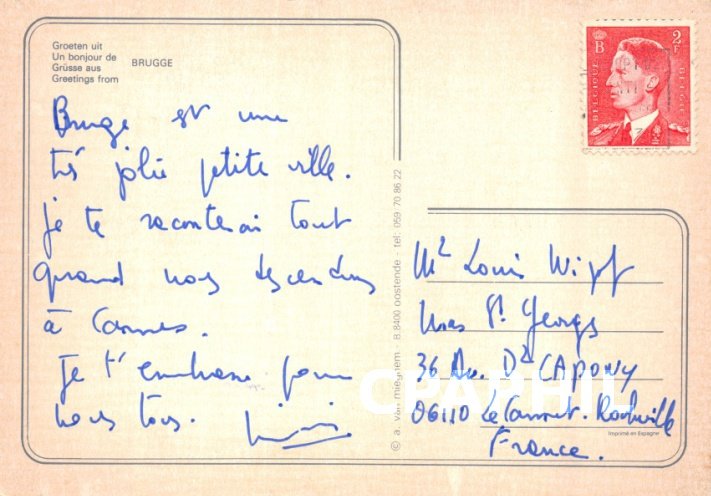 Groeten uit
Un bonjour de
Grüsse aus
Greetings from
BRUGGE
Bruge est une
très jolie petite ville.
je te raconterai tout
quand nous descendrons
à Cannes.
Je t'embrasse pour
nous tous.
© a. van mieghem - B 8400 oostende - tel. 059 70 86 22
B 2F
BELGIQUE
BELGIE
Mr Louis
St Georges
36 Av. Dr CAPONY
06110 Le Cannet. Rocheville
France.
Imprimé en Espagne
CPAPHIL